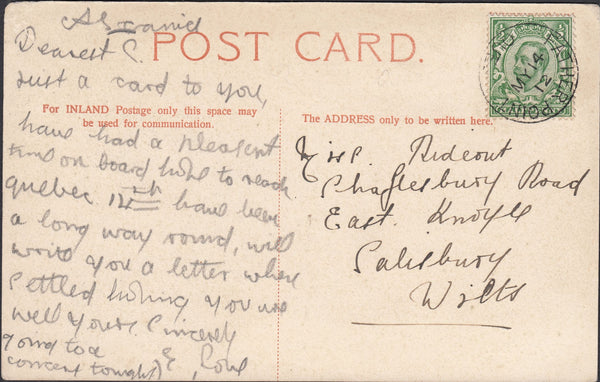 SS Ionic
Dearest C.
POST CARD.
Just a card to you,
For INLAND Postage only this space may
be used for communication.
have had a pleasent
time on board hope to reach
quebec 14th have been
a long way round, will
write you a letter when
settled hoping you are
well yours Sincerely
going to a
concert tonight
The ADDRESS only to be written here.
Rideout
Shaftesbury Road
East Knoyle
Salisbury
Wilts
FATHER POINT
MY 14
12